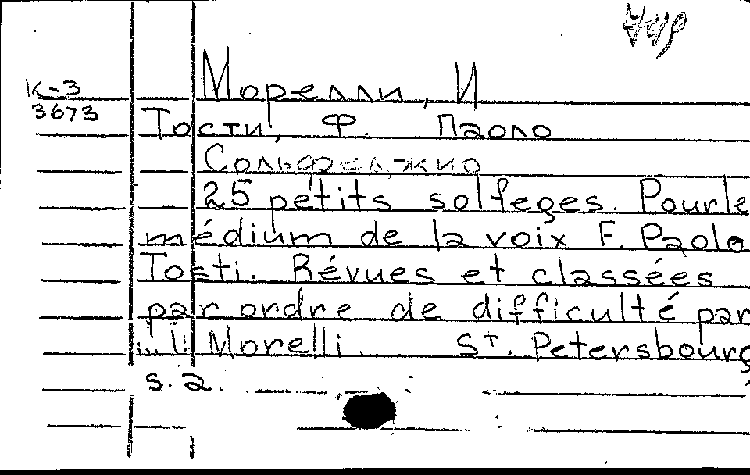 К-3
3673
Морелли, И
Тости, Ф. Паоло
Сольфеджио
25 petits solfeges. Pour le
médium de la voix F. Paolo
Tosti. Révues et classées
par ordre de difficulté par
I. Morelli St. Petersbourg
s. a.